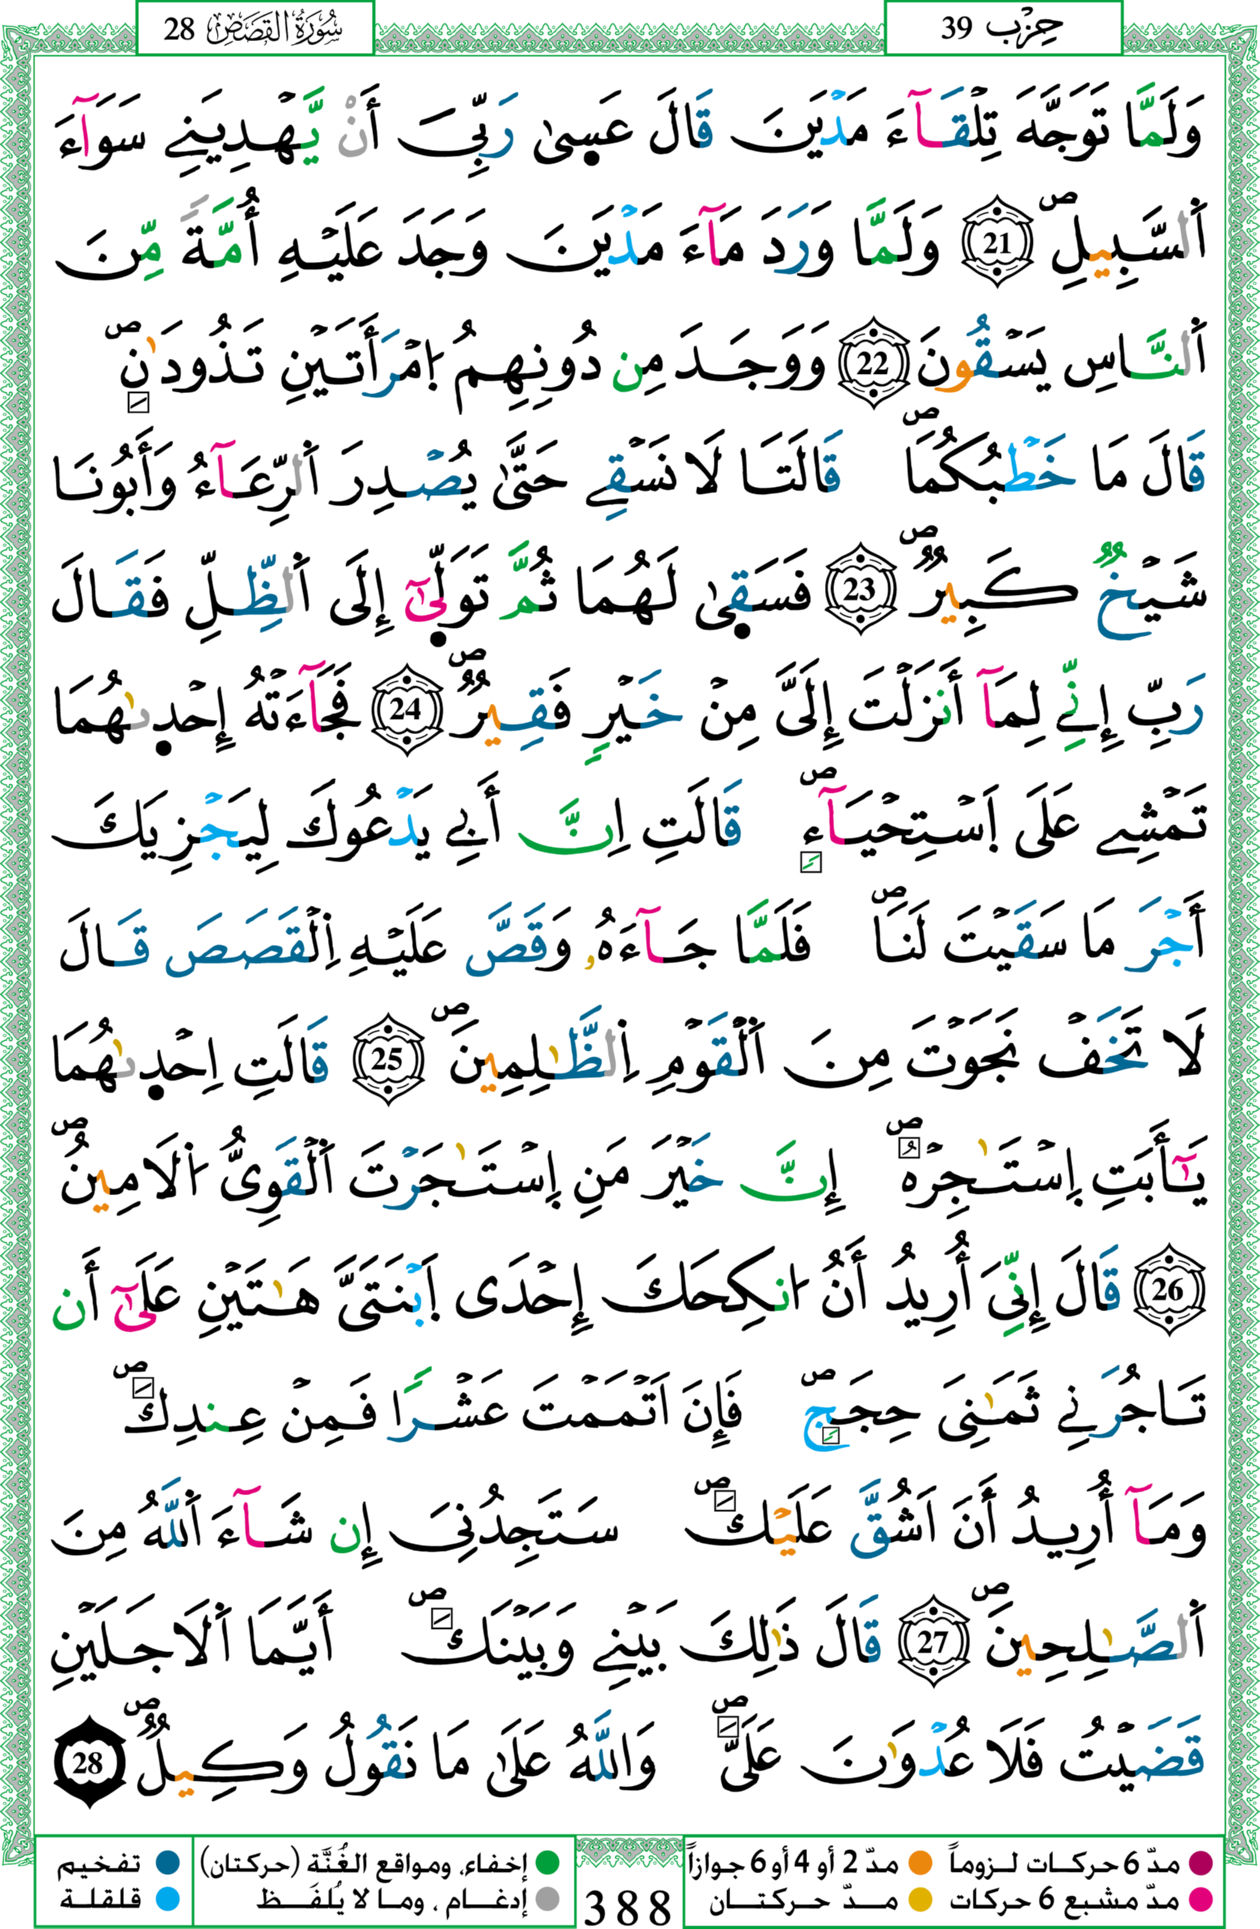 سُورَةُ القَصَصِ 28
حِزْب 39
وَلَمَّا تَوَجَّهَ تِلْقَآءَ مَدْيَنَ قَالَ عَس۪ىٰ رَبِّيَ أَنْ يَّهْدِيَنِے سَوَآءَ
اَ۬لسَّبِيلِۖ 21 وَلَمَّا وَرَدَ مَآءَ مَدْيَنَ وَجَدَ عَلَيْهِ أُمَّةٗ مِّنَ
اَ۬لنَّاسِ يَسْقُونَ 22 وَوَجَدَ مِن دُونِهِمُ اُ۪مْرَأَتَيْنِ تَذُودَٰنِۖ
قَالَ مَا خَطْبُكُمَاۖ قَالَتَا لَا نَسْقِے حَتَّىٰ يُصْدِرَ اَ۬لرِّعَآءُ وَأَبُونَا
شَيْخٞ كَبِيرٞۖ 23 فَسَق۪ىٰ لَهُمَا ثُمَّ تَوَلّ۪ىٰٓ إِلَى اَ۬لظِّلِّ فَقَالَ
رَبِّ إِنِّے لِمَآ أَنزَلْتَ إِلَيَّ مِنْ خَيْرٖ فَقِيرٞۖ 24 فَجَآءَتْهُ إِحْد۪ىٰهُمَا
تَمْشِے عَلَى اَ۪سْتِحْيَآءٖۖ قَالَتِ اِنَّ أَبِے يَدْعُوكَ لِيَجْزِيَكَ
أَجْرَ مَا سَقَيْتَ لَنَاۖ فَلَمَّا جَآءَهُۥ وَقَصَّ عَلَيْهِ اِ۬لْقَصَصَ قَالَ
لَا تَخَفْ نَجَوْتَ مِنَ اَ۬لْقَوْمِ اِ۬لظَّٰلِمِينَۖ 25 قَالَتِ اِحْد۪ىٰهُمَا
يَٰٓأَبَتِ اِ۪سْتَٰجِرْهُۖ إِنَّ خَيْرَ مَنِ اِ۪سْتَٰجَرْتَ اَ۬لْقَوِيُّ اُ۬لَامِينُۖ
26 قَالَ إِنِّيَ أُرِيدُ أَنُ ا۟نكِحَكَ إِحْدَى اَ۪بْنَتَيَّ هَٰتَيْنِ عَلَىٰٓ أَن
تَاجُرَنِے ثَمَٰنِيَ حِجَجٖۖ فَإِنَ اَتْمَمْتَ عَشْراٗ فَمِنْ عِندِكَۖ
وَمَآ أُرِيدُ أَنَ اَشُقَّ عَلَيْكَۖ سَتَجِدُنِيَ إِن شَآءَ اَ۬للَّهُ مِنَ
اَ۬لصَّٰلِحِينَۖ 27 قَالَ ذَٰلِكَ بَيْنِے وَبَيْنَكَۖ أَيَّمَا اَ۬لَاجَلَيْنِ
قَضَيْتُ فَلَا عُدْوَٰنَ عَلَيَّۖ وَاللَّهُ عَلَىٰ مَا نَقُولُ وَكِيلٞۖ 28
مدّ 6 حركات لـزوماً مدّ 2 أو 4 أو 6 جوازاً إخفاء، ومواقع الغُنَّة (حركتان) تفخيم
مدّ مشبع 6 حركات مـدّ حـركتـــان إدغـام ، ومـا لا يُلفَـظ قلقلة
388